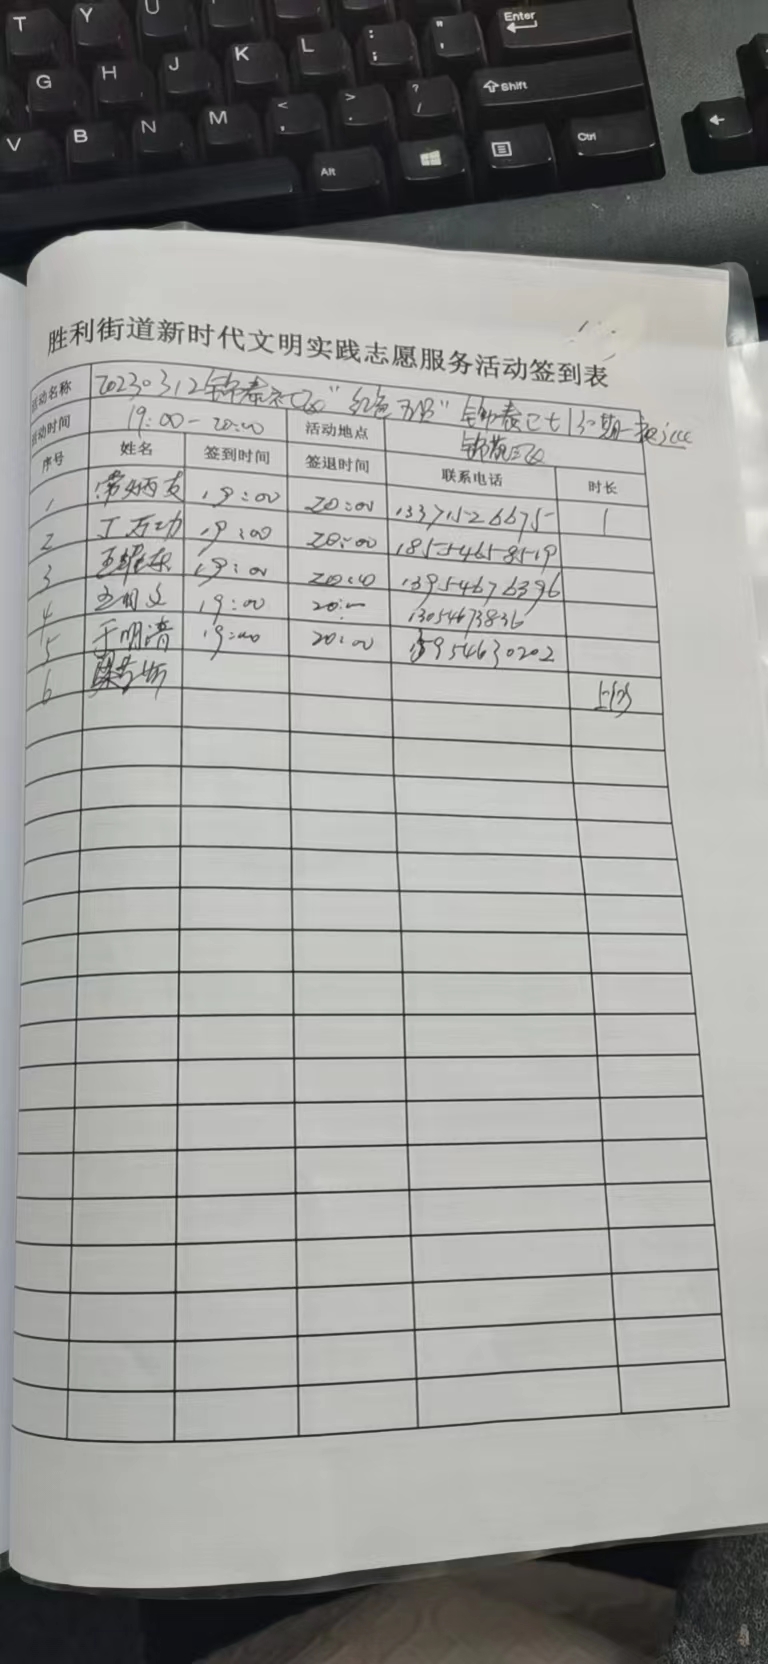 T Y U
Enter
G H J K L : ; " '
Shift
V B N M < , > . ? /
Alt
Ctrl
胜利街道新时代文明实践志愿服务活动签到表
活动名称 20230312锦泰社区"红色
活动时间 19:00-20:00 活动地点 锦苑三区
序号 姓名 签到时间 签退时间 联系电话 时长
1 19:00 20:00 13371526675 1
2 丁万功 19:00 20:00 18554658519
3 王耀东 19:00 20:00 13954676396
4 19:00 20:00 13054673836
5 于明清 19:00 20:00 15954630202
6